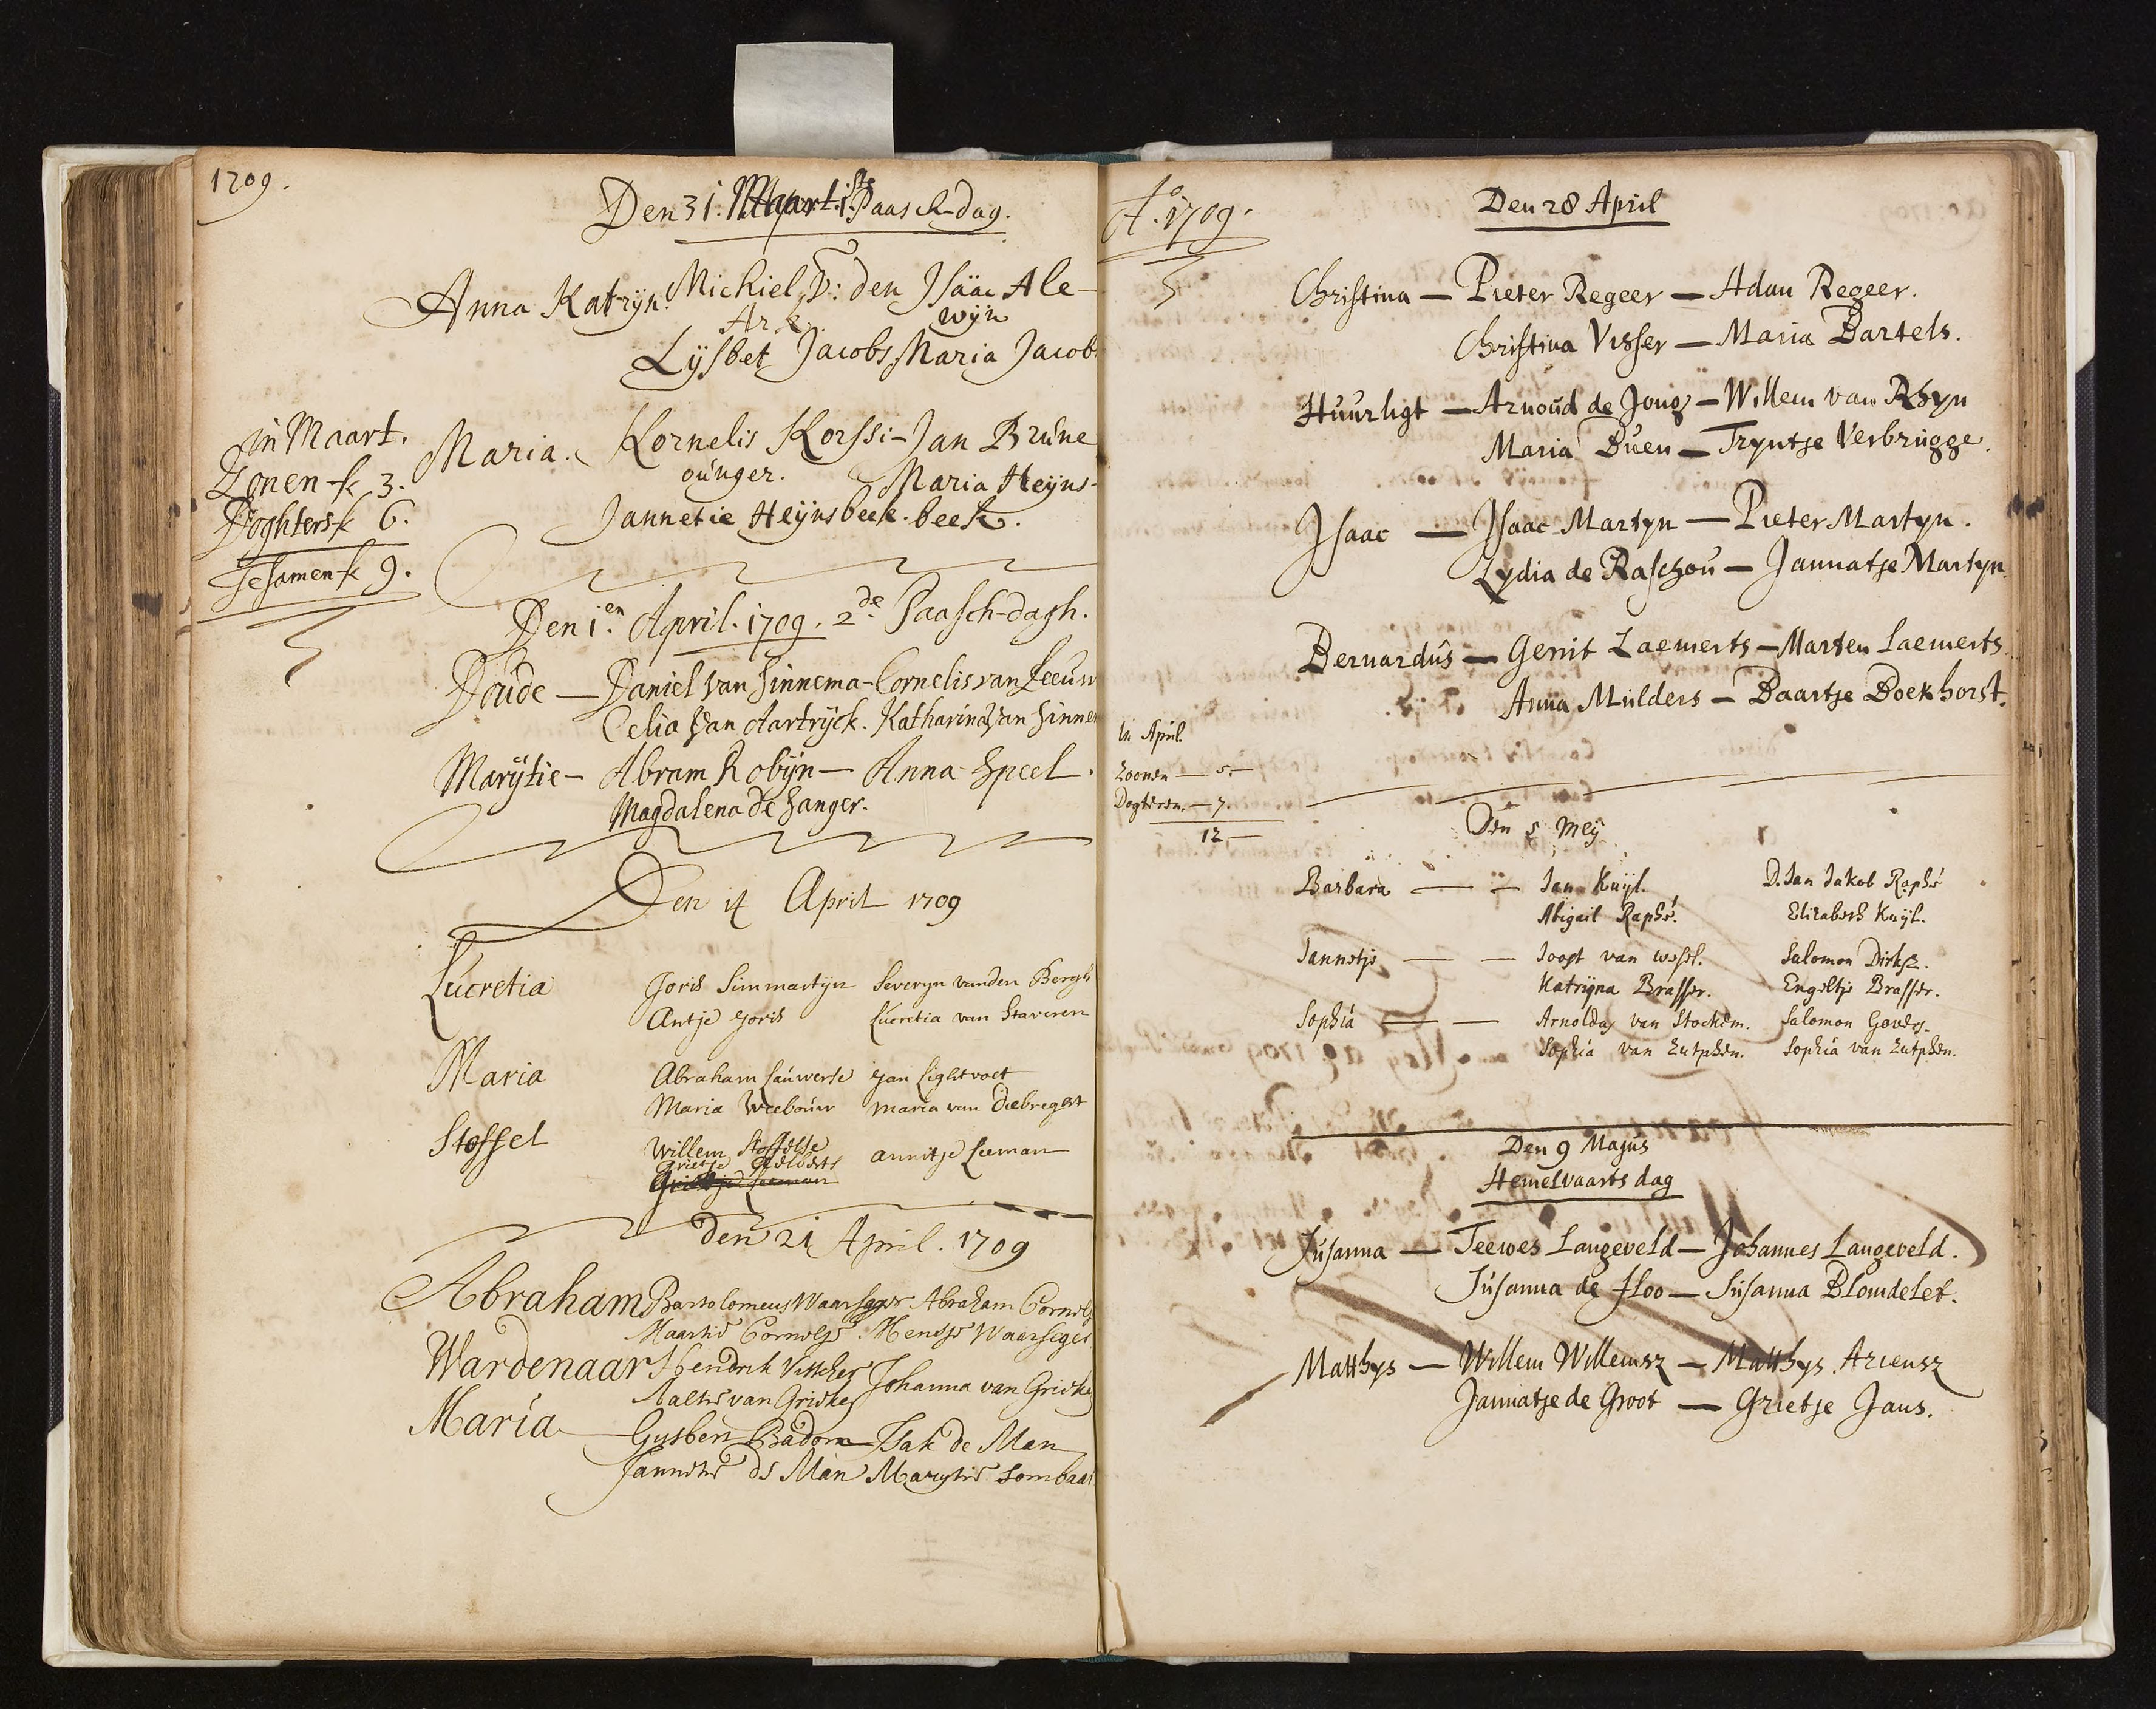 1709.
Den 31. Maart. 1ste Paasch-dag.
Anna Katrijn. Michiel V: den Isäac Ale-
Ark. wijn
Lijsbet Jacobs, Maria Jacobs
in Maart.
Zonen-k 3.
Doghters-k 6.
Tesamen-k 9.
Maria. Kornelis Korssi- Jan Brune
oúnger. Maria Heijns-
Jannetie Heijnsbeek. beek.
Den 1.en April. 1709. 2de Paasch-dagh.
Doúde — Daniel van Sinnema - Cornelis van Leeuw
Celia van Aartrijck. Katharina van Sinne
Marÿtie — Abram Robijn — Anna Speel.
Magdalena de Sanger.
Den 14 April 1709
Lúcretia Joris Simmartijn Severyn vanden Bergh
Antje Joris Lúcretia van Staveren
Maria Abraham Laúwerse Jan Lightvoet
Maria Weeboúw maria van
Stoffel Willem Stoffelse annitje Leeman
Grietje
Leeman
den 21 April. 1709
Abraham Bartolomeus Waarseger Abraham Cornelis
Maartie Cornelise. Hendje Waarseger
Wardenaar Hendrik Visscher Johanna van
Aaltie van
Maria — Gysbert Badom — Isak de Man
Jannetie de Man Marytie Lombaar
Ao. 1709.
Den 28 April
Christina — Pieter Regeer — Adam Regeer.
Christina Visser — Maria Bartels.
Húúrligt — Arnoúd de Jong — Willem van Rhyn
Maria Búen — Tryntje Verbrúgge.
Isaac — Isaac Martyn — Pieter Martyn.
Lydia de Raschoú — Jannatje Martyn.
Bernardús — Gerrit Laemerts — Marten Laemerts.
Anna Múlders — Baartje Boekhorst.
In April.
Zoonen — 5 —
Dogteren. — 7.
12 —
Den 5 Meij
Barbara — Jan Kuijl. D. Jan Jakob Raphé
Abigail Raphé. Elizabeth Kuijl.
Jannetje — Joost van Wesel. Salomon Dirksz.
Katrijna Brasser. Engeltje Brasser.
Sophia — Arnoldus van Stockem. Salomon Govers.
Sophia van Zutphen. Sophia van Zutphen.
Den 9 Majus
Hemelvaarts dag
Súsanna — Teewes Langeveld — Johannes Langeveld.
Súsanna de Hoo — Súsanna Blomdelet.
Matthys — Willem Willemsz — Matthys Ariensz
Jannatje de Groot — Grietje Jans.